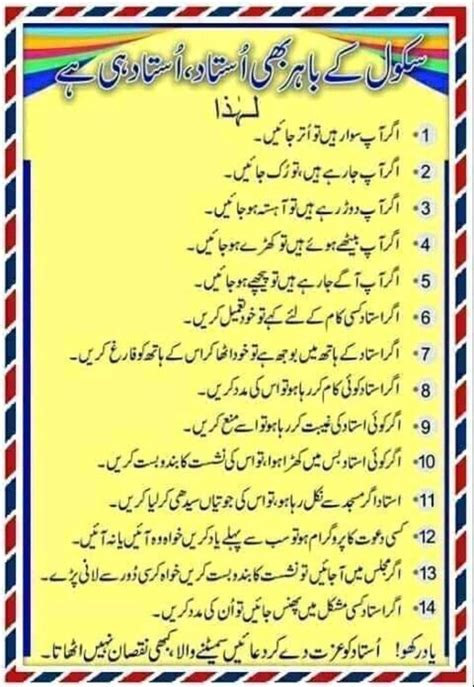 سکول کے باہر بھی اُستاد، اُستاد ہی ہے
لہٰذا
1 • اگر آپ سوار ہیں تو اُتر جائیں۔
2 • اگر آپ جا رہے ہیں، تو رُک جائیں۔
3 • اگر آپ دوڑ رہے ہیں تو آہستہ ہو جائیں۔
4 • اگر آپ بیٹھے ہوئے ہیں تو کھڑے ہو جائیں۔
5 • اگر آپ آگے جا رہے ہیں تو پیچھے ہو جائیں۔
6 • اگر استاد کسی کام کے لئے کہے تو خود تعمیل کریں۔
7 • اگر استاد کے ہاتھ میں بوجھ ہے تو خود اٹھا کر اس کے ہاتھ کو فارغ کریں۔
8 • اگر استاد کوئی کام کر رہا ہو تو اس کی مدد کریں۔
9 • اگر کوئی استاد کی غیبت کر رہا ہو تو اسے منع کریں۔
10 • اگر کوئی استاد بس میں کھڑا ہو، تو اس کی نشست کا بندوبست کریں۔
11 • استاد اگر مسجد سے نکل رہا ہو، تو اس کی جوتیاں سیدھی کر لیا کریں۔
12 • کسی دعوت کا پروگرام ہو تو سب سے پہلے یاد کریں خواہ وہ آئیں یا نہ آئیں۔
13 • اگر مجلس میں آ جائیں تو نشست کا بندوبست کریں خواہ کرسی دُور سے لانی پڑے۔
14 • اگر استاد کسی مشکل میں پھنس جائیں تو اُن کی مدد کریں۔
یاد رکھو! اُستاد کو عزت دے کر دعائیں سمیٹنے والا، کبھی نقصان نہیں اٹھاتا۔